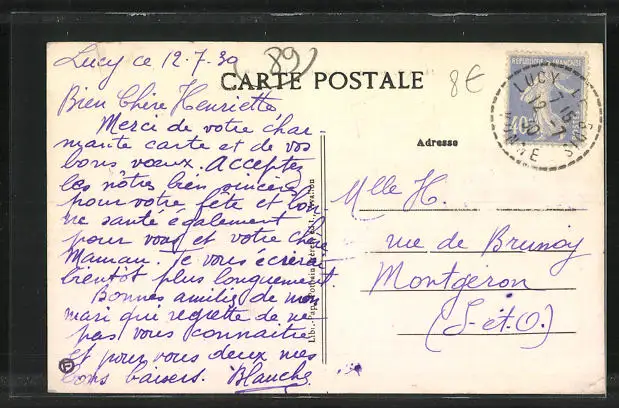 Lucy ce 12-7-30
(89)
CARTE POSTALE
8€
Bien Chère Henriette
Merci de votre char
mante carte et de vos
bons vœux. Acceptez
les nôtres bien sincères
pour votre fête et bon
ne santé également
pour vous et votre chère
Maman. Je vous écrirai
bientôt plus longuement.
Bonnes amitiés de mon
mari qui regrette de ne
pas vous connaitre
et pour vous deux mes
bons baisers. Blanche
Adresse
Mlle H.
rue de Brunoy
Montgeron
(S-et-O.)
REPUBLIQUE FRANÇAISE
40
LUCY
YONNE